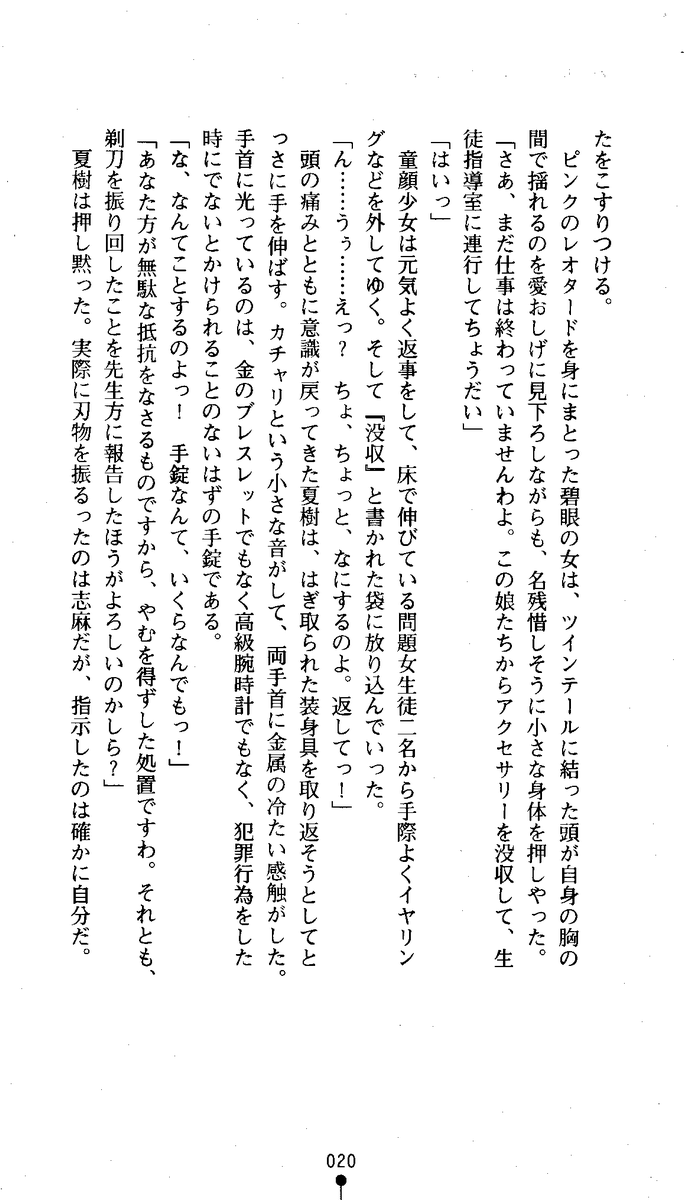 たをこすりつける。
ピンクのレオタードを身にまとった碧眼の女は、ツインテールに結った頭が自身の胸の
間で揺れるのを愛おしげに見下ろしながらも、名残惜しそうに小さな身体を押しやった。
「さあ、まだ仕事は終わっていませんわよ。この娘たちからアクセサリーを没収して、生
徒指導室に連行してちょうだい」
「はいっ」
童顔少女は元気よく返事をして、床で伸びている問題女生徒二名から手際よくイヤリン
グなどを外してゆく。そして『没収』と書かれた袋に放り込んでいった。
「ん……うぅ……えっ？　ちょ、ちょっと、なにするのよ。返してっ！」
頭の痛みとともに意識が戻ってきた夏樹は、はぎ取られた装身具を取り返そうとしてと
っさに手を伸ばす。カチャリという小さな音がして、両手首に金属の冷たい感触がした。
手首に光っているのは、金のブレスレットでもなく高級腕時計でもなく、犯罪行為をした
時にでないとかけられることのないはずの手錠である。
「な、なんてことするのよっ！　手錠なんて、いくらなんでもっ！」
「あなた方が無駄な抵抗をなさるものですから、やむを得ずした処置ですわ。それとも、
剃刀を振り回したことを先生方に報告したほうがよろしいのかしら？」
夏樹は押し黙った。実際に刃物を振るったのは志麻だが、指示したのは確かに自分だ。
020